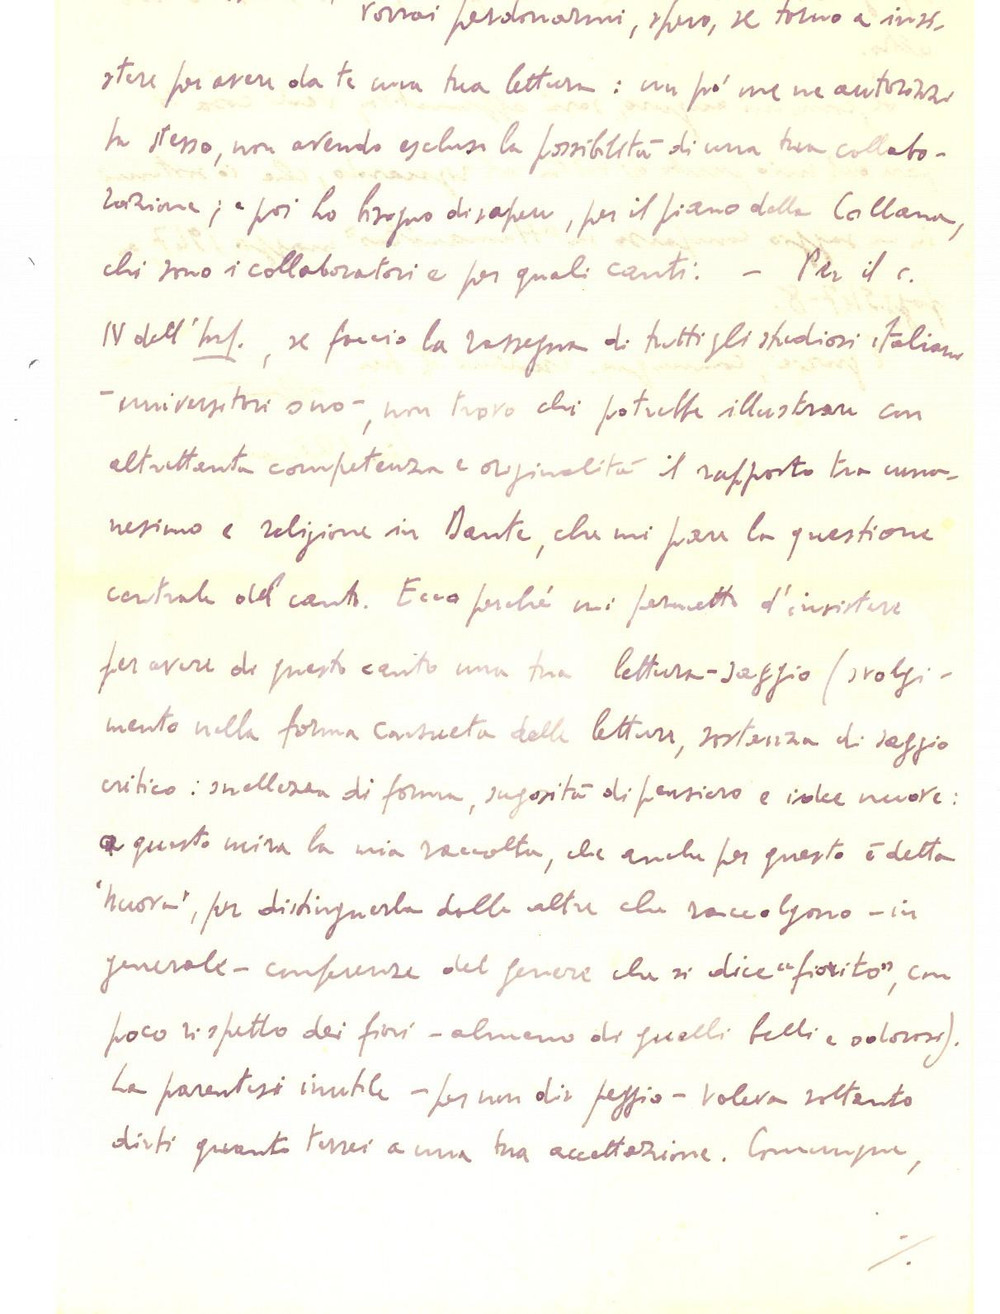 vorrai perdonarmi, spero, se torno a insi-
stere per avere da te una tua lettura: un po' me ne autorizzi
tu stesso, non avendo escluso la possibilità di una tua collabo-
razione; e poi ho bisogno di sapere, per il piano della Collana,
chi sono i collaboratori e per quali canti. — Per il c.
IV dell'Inf., se faccio la rassegna di tutti gli studiosi italiani
- universitari o no -, non trovo chi potrebbe illustrare con
altrettanta competenza e originalità il rapporto tra uma-
nesimo e religione in Dante, che mi pare la questione
centrale del canto. Ecco perché mi permetto d'insistere
per avere di questo canto una tua lettura-saggio (svolgi-
mento nella forma consueta delle letture, sostanza di saggio
critico: snellezza di forma, sugosità di pensiero e idee nuove:
a questo mira la mia raccolta, che anche per questo è detta
"nuova", per distinguerla dalle altre che raccolgono - in
generale - conferenze del genere che si dice "fiorito", con
poco rispetto dei fiori - almeno di quelli belli e odorosi).
La parentesi inutile - per non dir peggio - voleva soltanto
dirti quanto terrei a una tua accettazione. Comunque,
./.